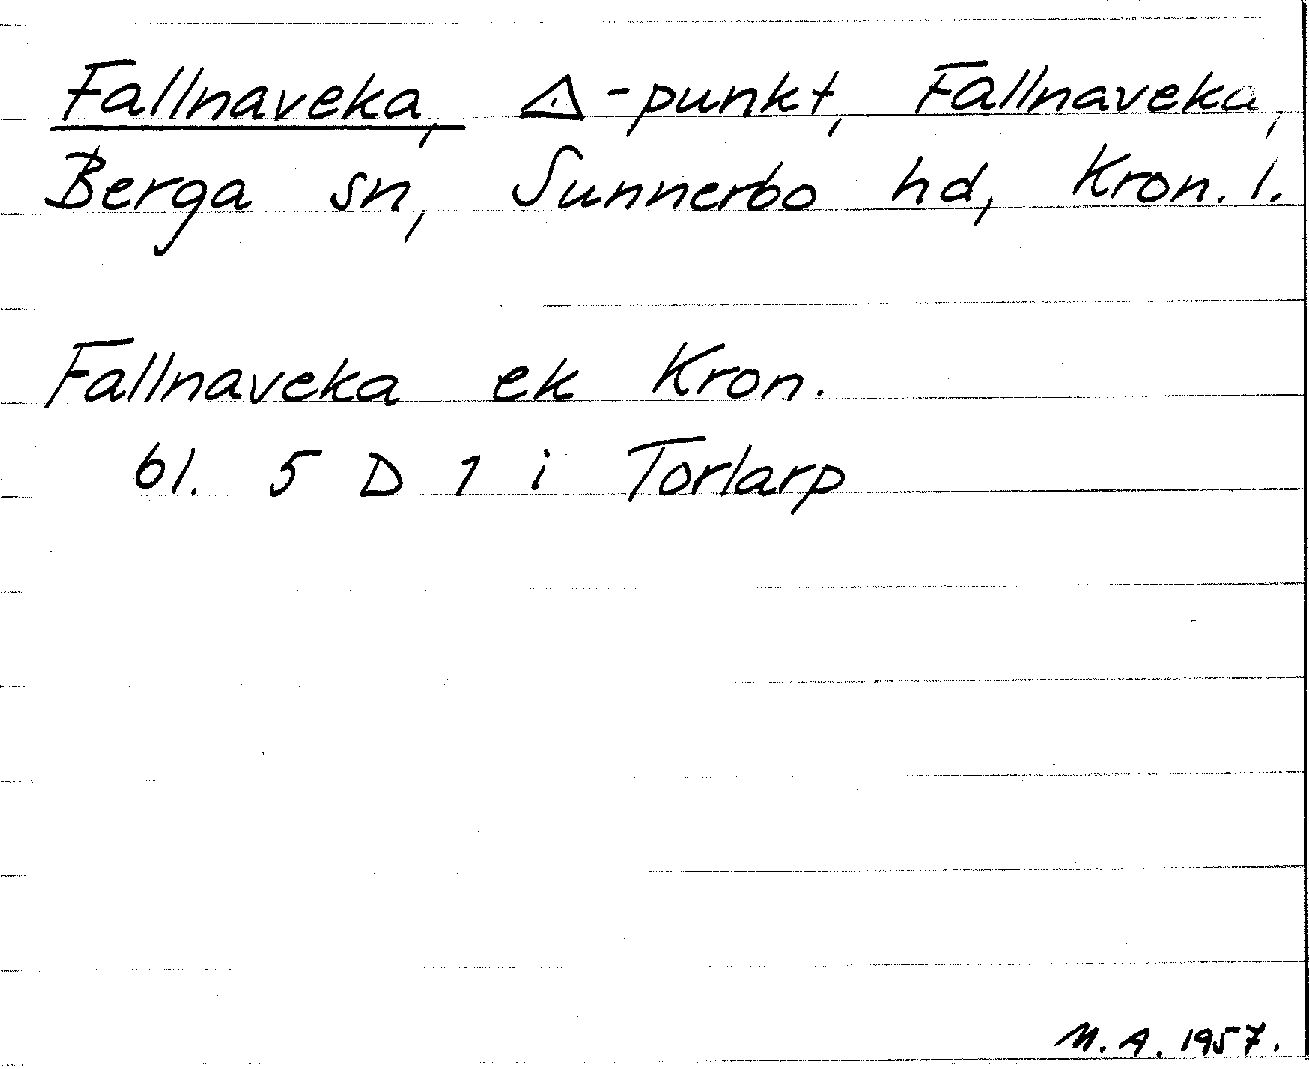 Fallnaveka, △-punkt, Fallnaveka,
Berga sn, Sunnerbo hd, Kron. l.
Fallnaveka ek Kron.
bl. 5 D 1 i Torlarp
M.A. 1957.